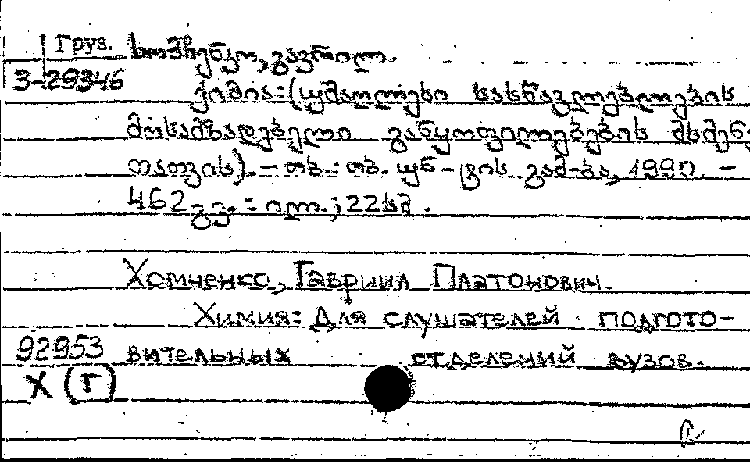 Груз. ხომჩენკო, გავრილ.
3-29346
ქიმია: (უმაღლესი სასწავლებლების
მოსამზადებელი განყოფილებების მსმენ
თათვის). – თბ.: თბ. უნ-ტის გამ-ბა, 1990. –
462 გვ. : ილ.; 22სმ.
Хомченко, Гавриил Платонович.
Химия: Для слушателей подгото-
92953 вительных отделений вузов.
Х (Г)